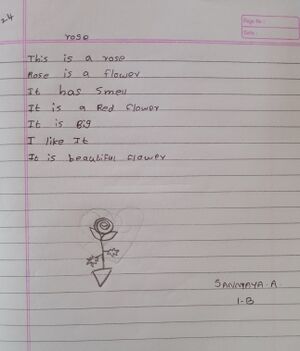 24
Page No:
Date:
rose
This is a rose
Rose is a flower
It has smell
It is a Red flower
It is Big
I like It
It is beautiful flower
A.
1-B